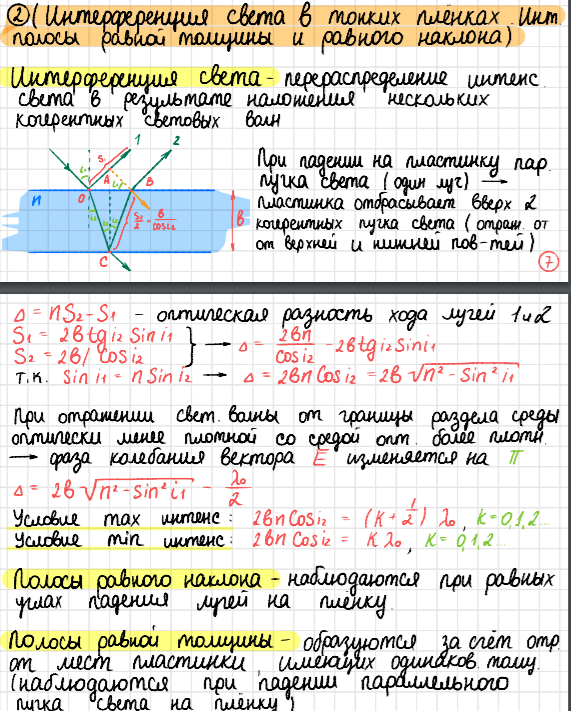 ② (Интерференция света в тонких плёнках. Инт.
полосы равной толщины и равного наклона)
Интерференция света - перераспределение интенс.
света в результате наложения нескольких
когерентных световых волн
1
2
S₁
i₁
A
i₁
O
B
n
i₂
i₂
S₂/2 = b/cosi₂
b
C
При падении на пластинку пар.
пучка света (один луч) →
пластинка отбрасывает вверх 2
когерентных пучка света (отраж. от
от верхней и нижней пов-тей)
7
Δ = nS₂ - S₁ - оптическая разность хода лучей 1 и 2
S₁ = 2b tg i₂ Sin i₁
S₂ = 2b / Cos i₂
→ Δ = 2bn/Cos i₂ - 2b tg i₂ Sin i₁
т.к. Sin i₁ = n Sin i₂ → Δ = 2bn Cos i₂ = 2b √(n² - Sin² i₁)
При отражении свет. волны от границы раздела среды
оптически менее плотной со средой опт. более плотн.
→ фаза колебания вектора E изменяется на π
Δ = 2b √(n² - Sin² i₁) - λ₀/2
Условие max интенс: 2bn Cos i₂ = (K + 1/2) λ₀, K = 0,1,2...
Условие min интенс: 2bn Cos i₂ = K λ₀, K = 0,1,2...
Полосы равного наклона - наблюдаются при равных
углах падения лучей на плёнку.
Полосы равной толщины - образуются за счёт отр.
от мест пластинки, имеющих одинаков. толщ.
(наблюдаются при падении параллельного
пучка света на плёнку)